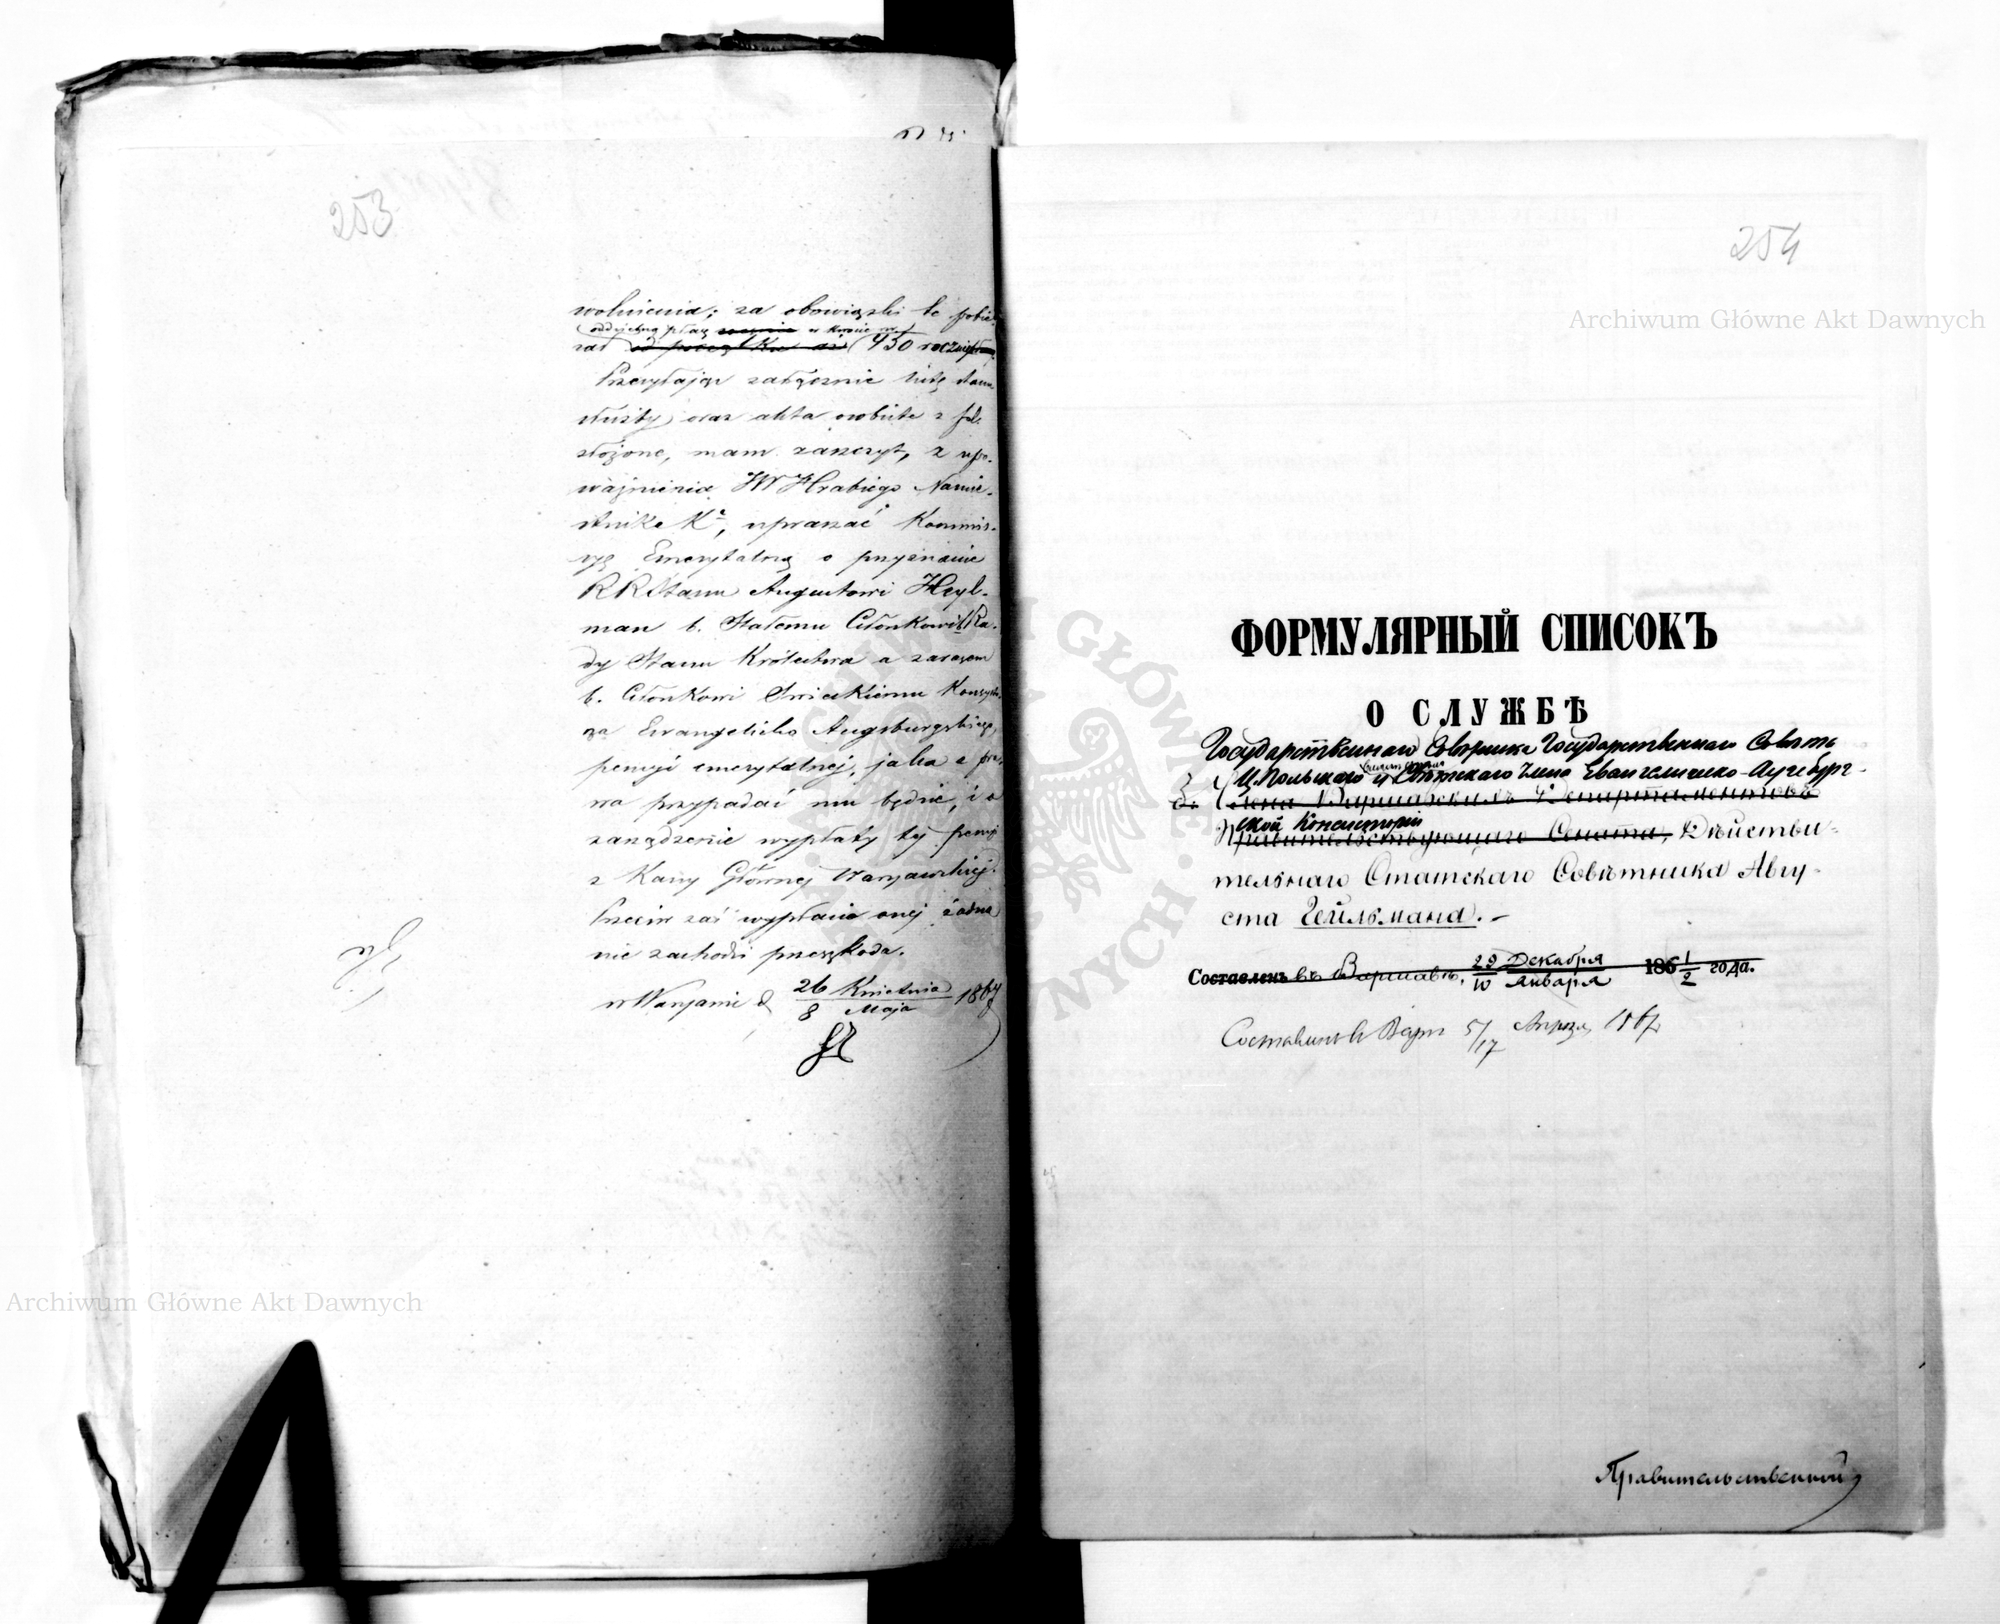 253
wolnienia; za obowiązki te pobie-
oddzielną płacę rocznie w kwocie rs.
rał od początku aż 450 rocznie
Przesyłając załącznie listę stanu
służby oraz akta osobiste
złożone, mam zaszczyt, z upo-
ważnienia JW Hrabiego Namie-
stnika Kr, upraszać Kommis-
syę Emerytalną o przyznanie
RRStanu Augustowi Heyl-
man b. Stałemu Członkowi Ra-
dy Stanu Królestwa a zarazem
b. Członkowi Świeckiemu Konsysto-
rza Ewangelicko Augsburgskiego,
pensyi emerytalnej, jaka z pra-
wa przypadać mu będzie, i o
zarządzenie wypłaty tej pensyi
z Kassy Głównej Warszawskiej.
Przeciw zaś wypłacie onej żadna
nie zachodzi przeszkoda.
w Warszawie d 26 Kwietnia / 8 Maja 1867
254
Archiwum Główne Akt Dawnych
ФОРМУЛЯРНЫЙ СПИСОКЪ
О СЛУЖБѢ
Государственнаго Совѣтника Государственнаго Совѣта
Ц. Польскаго и Свѣтскаго Члена Евангелическо-Аугсбург-
Члена Варшавскихъ Департаментовъ
ской Консисторіи
Правительствующаго Сената, Дѣйстви-
тельнаго Статскаго Совѣтника Авгу-
ста Гейльмана. -
Составленъ въ Варшавѣ, 29 Декабря / 10 Января 186 1/2 года.
Составленъ в Варш 5/17 Апрѣля 1867
Правительственной
Archiwum Główne Akt Dawnych
ARCHIWUM GŁÓWNE AKT DAWNYCH